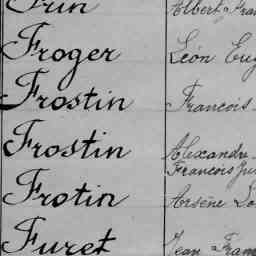 Frin Albert
Froger Léon Eug
Frostin Francois
Frostin Alexandre
Francois Ju
Frotin Arsène Lo
Furet Jean Fran